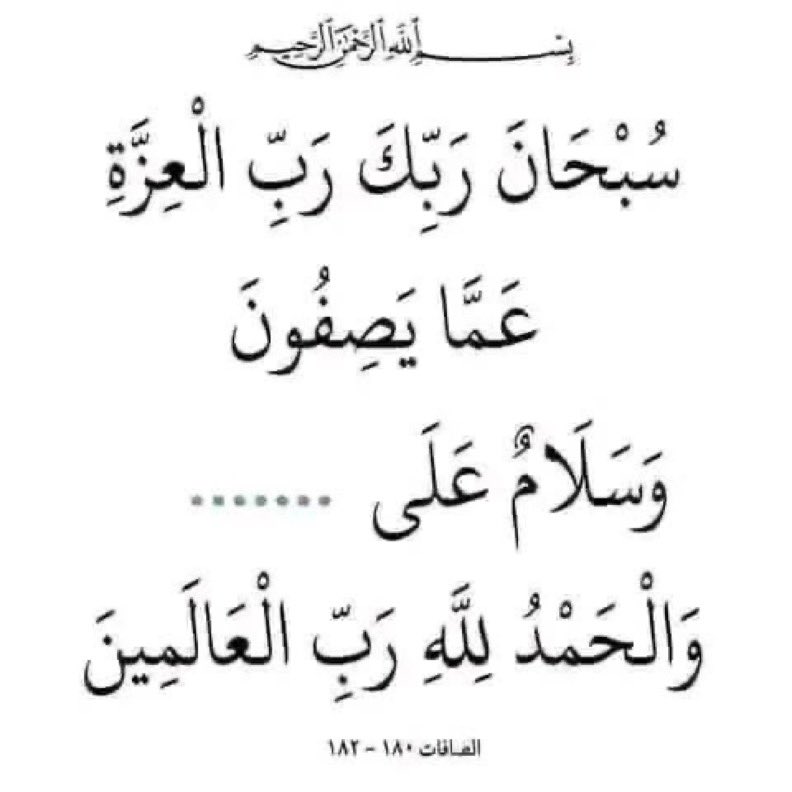 بِسْمِ اللَّهِ الرَّحْمَٰنِ الرَّحِيمِ
سُبْحَانَ رَبِّكَ رَبِّ الْعِزَّةِ
عَمَّا يَصِفُونَ
وَسَلَامٌ عَلَى .......
وَالْحَمْدُ لِلَّهِ رَبِّ الْعَالَمِينَ
الصافات ١٨٠ - ١٨٢